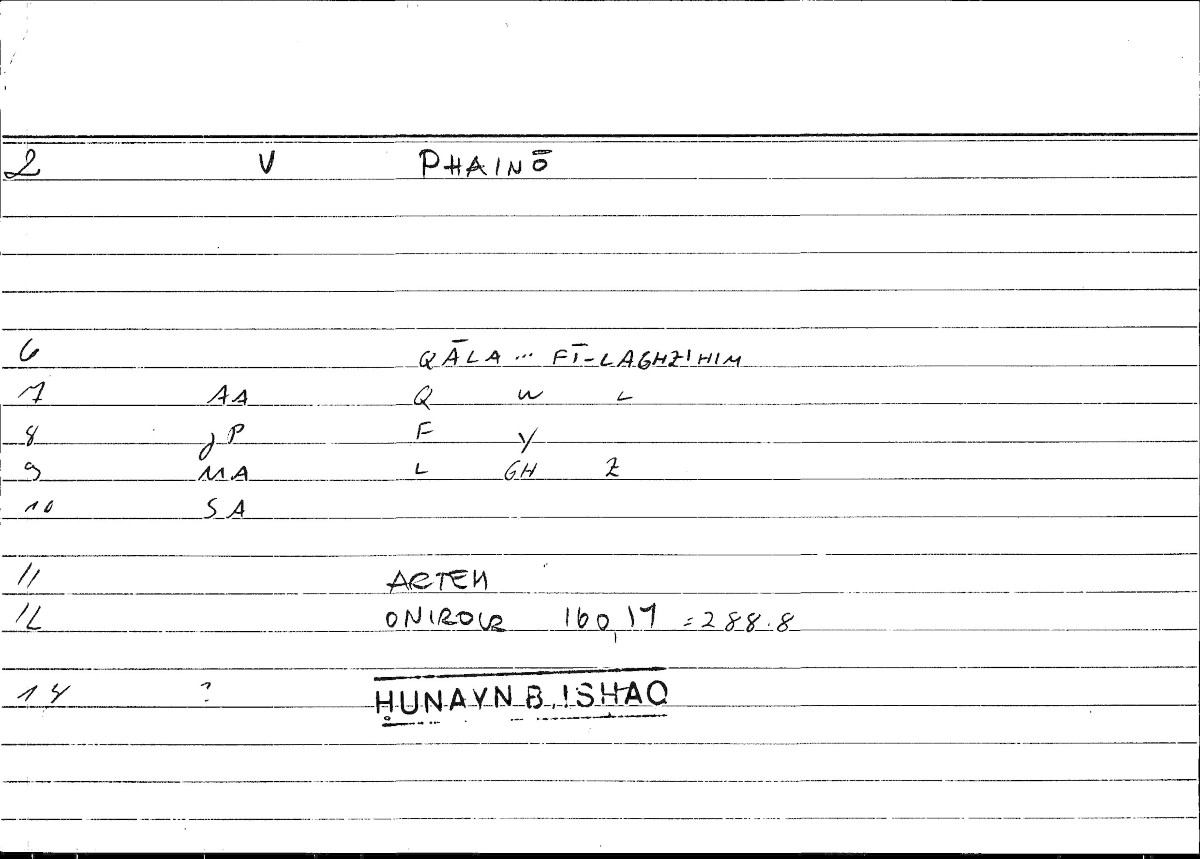 2 V PHAINŌ
6 QĀLA ... FĪ-LAGHZIHIM
7 AA Q W L
8 JP F Y
9 MA L GH Z
10 SA
11 ARTEM
12 ONIROCR 160,17 = 288.8
14 ? ḤUNAYN B. ISHAQ